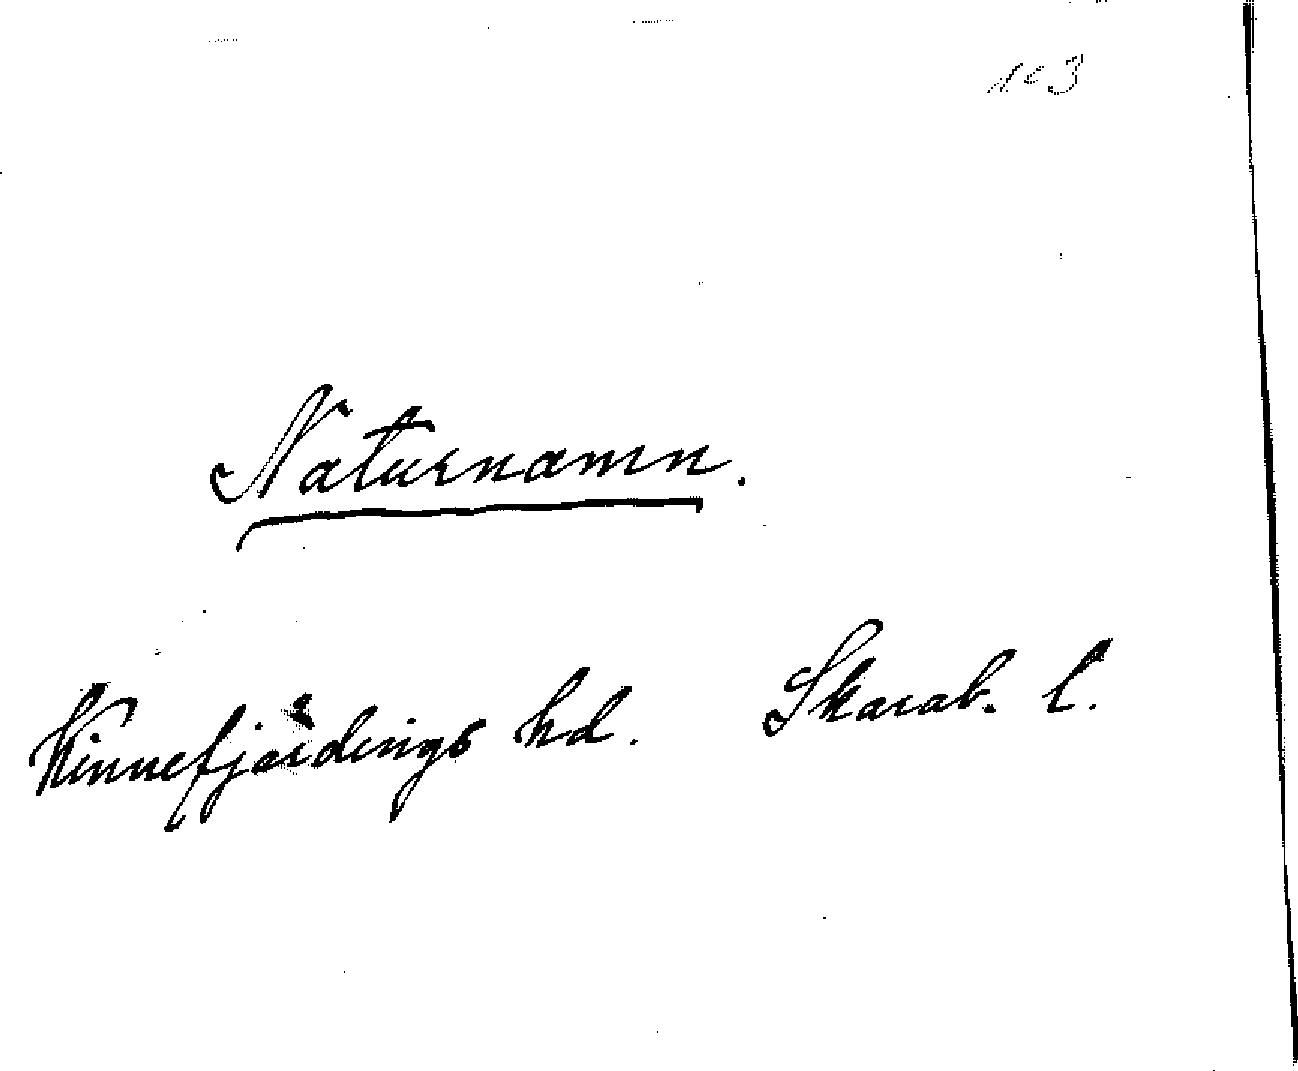 103
Naturnamn.
Kinnefjärdings hd. Skarab. l.